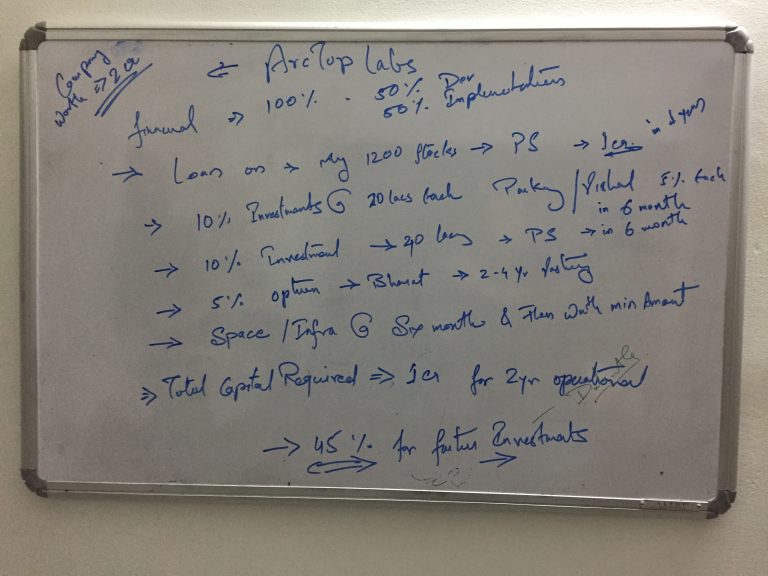 Company
Worth => 2 cr
ArcTop Labs
financial => 100% - 50% Dev
50% Implementations
→ Loan on → My 1200 Stocks → PS → 1cr. in 3 years
→ 10% Investments @ 20 lacs Each / Vishal 5% Each
in 6 month
→ 10% Investment → 40 lacs → PS → in 6 month
→ 5% option → Bharat → 2-4 yr Vesting
→ Space / Infra @ Six months & Then With min Amount
=> Total Capital Required => 1cr for 2yr operational
→ 45% for further Investments